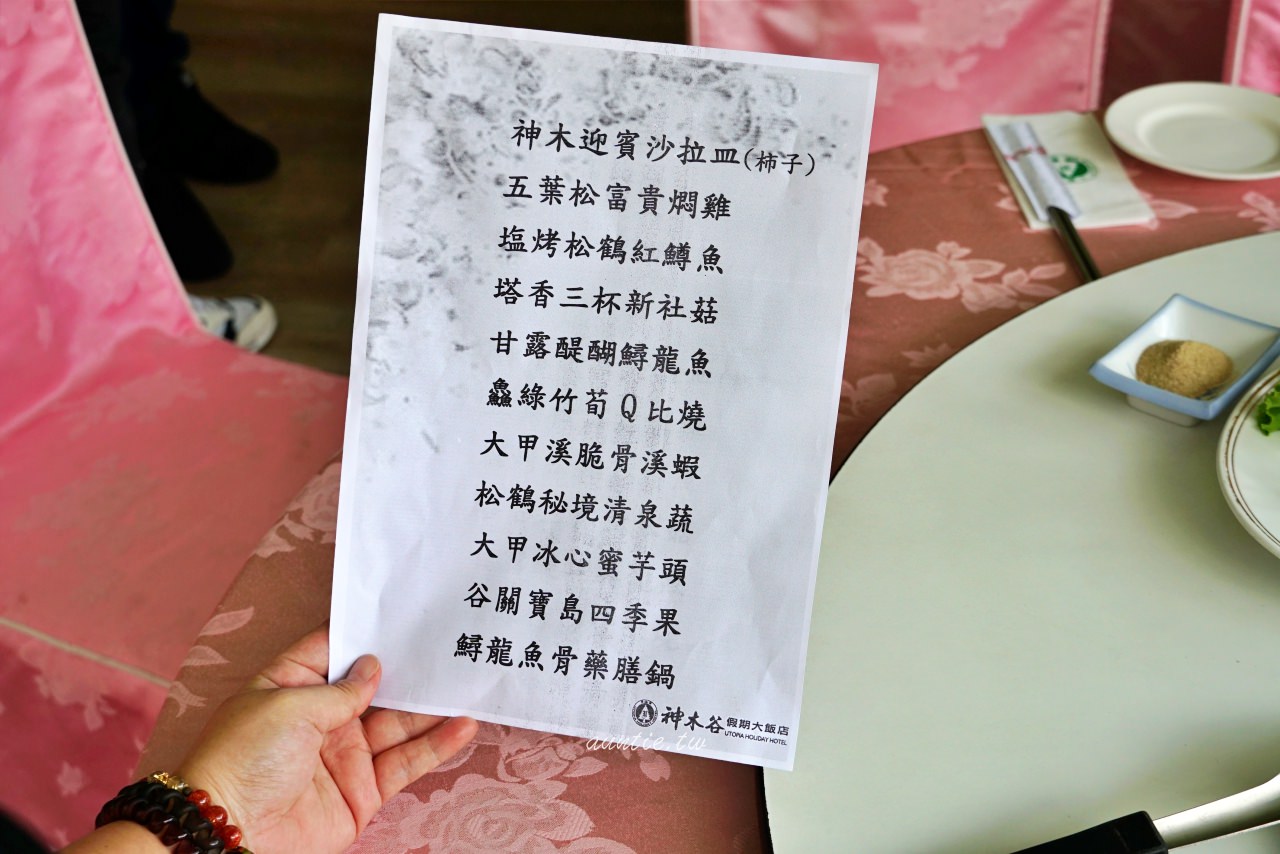 神木迎賓沙拉皿(柿子)
五葉松富貴燜雞
塩烤松鶴紅鱒魚
塔香三杯新社菇
甘露醍醐鱘龍魚
鱻綠竹荀Q比燒
大甲溪脆骨溪蝦
松鶴秘境清泉蔬
大甲冰心蜜芋頭
谷關寶島四季果
鱘龍魚骨藥膳鍋
神木谷假期大飯店
UTOPIA HOLIDAY HOTEL
auntie.tw